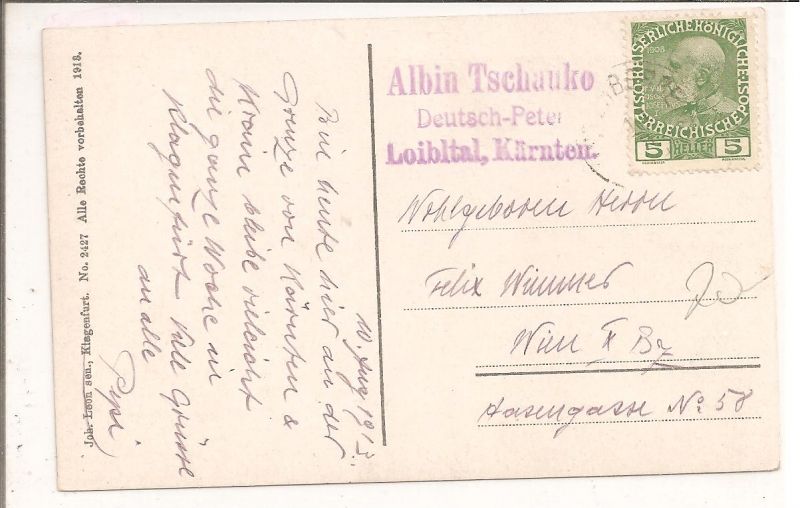 Joh. Leon sen., Klagenfurt. No. 2427 Alle Rechte vorbehalten 1913.
10. Aug 1913
Bin heute hier an der
Grenze von Kärnten &
Krain bleibe vielleicht
die ganze Woche in
Klagenfurt. Viele Grüsse
an alle
Pepi
Albin Tschauko
Deutsch-Peter
Loibltal, Kärnten.
1908
KAISERLICHE KÖNIGLICHE
ÖSTERREICHISCHE POST
5 HELLER 5
Wohlgeboren Herrn
Felix Wimmer
Wien X Bz
Hasengasse No 58
20